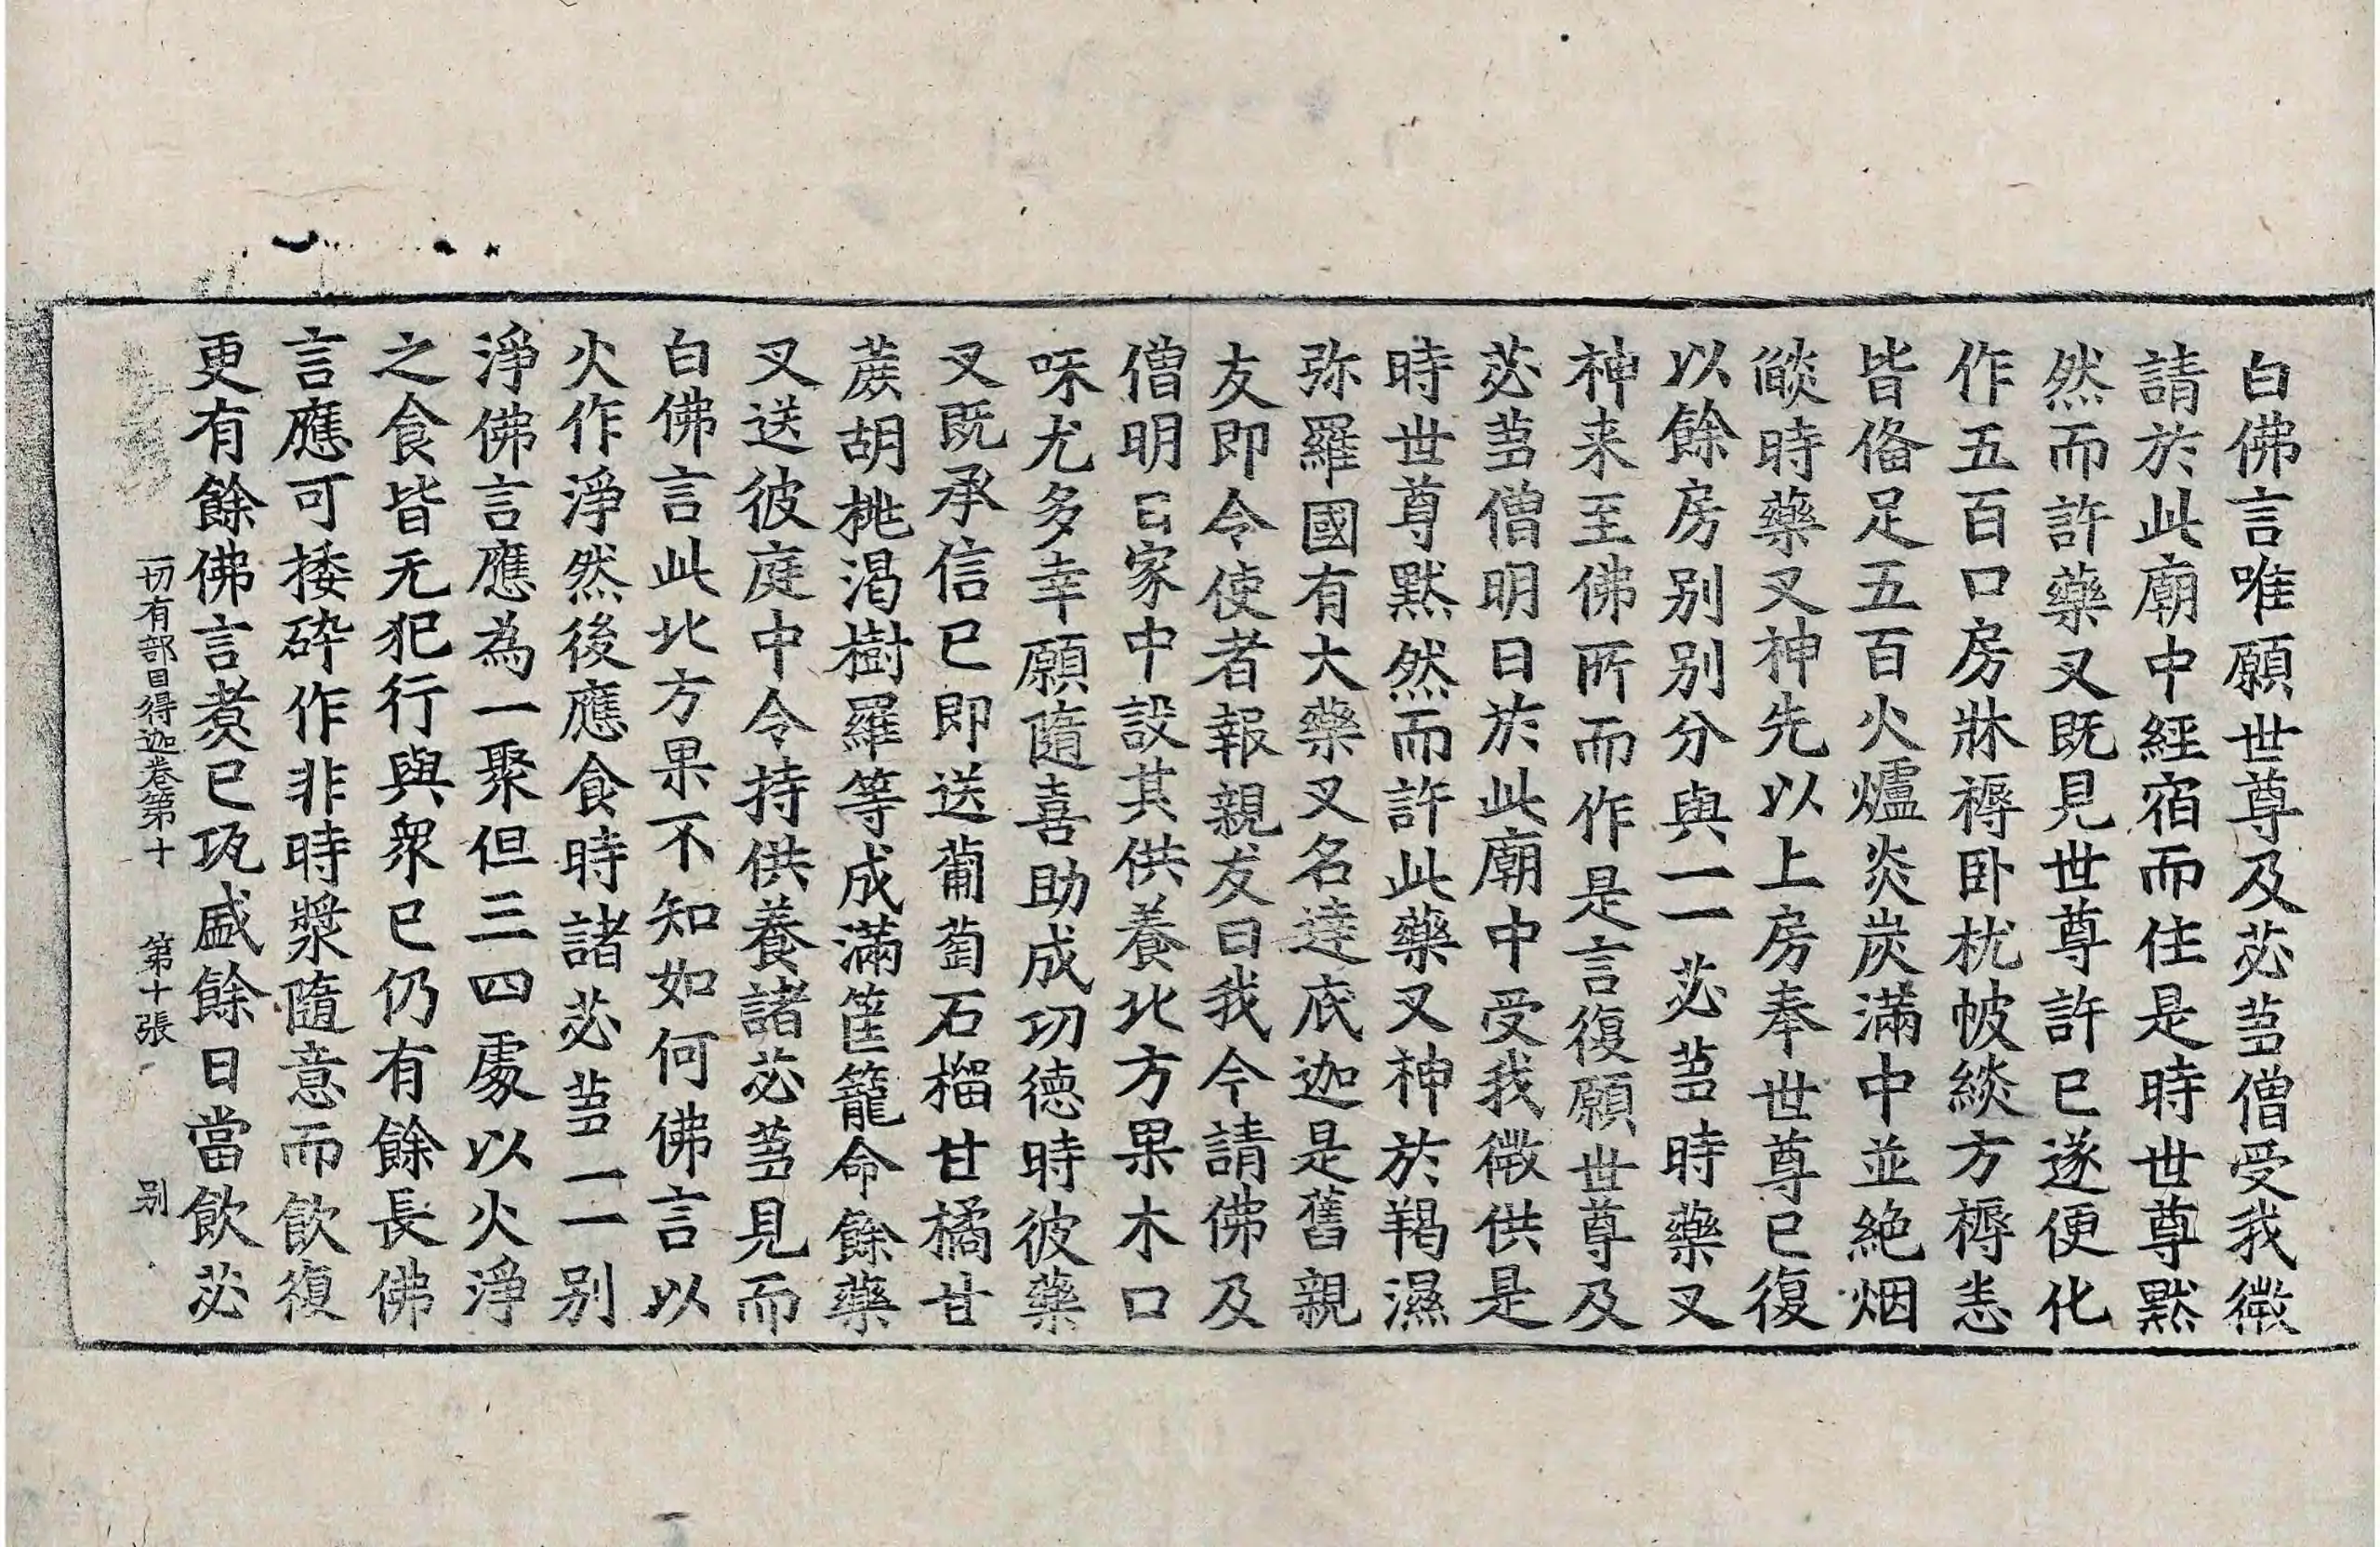 白佛言唯願世尊及苾芻僧受我微
請於此廟中經宿而住是時世尊默
然而許藥叉既見世尊許已遂便化
作五百口房牀褥卧枕帔緂方褥悉
皆俻足五百火爐炎炭滿中並絶烟
燄時藥叉神先以上房奉世尊已復
以餘房别别分與一一苾芻時藥叉
神来至佛所而作是言復願世尊及
苾芻僧明日於此廟中受我微供是
時世尊默然而許此藥叉神於羯濕
弥羅國有大藥叉名達底迦是舊親
友即令使者報親友曰我今請佛及
僧明日家中設其供養北方果木口
味尤多幸願隨喜助成功德時彼藥
叉既承信已即送葡萄石榴甘橘甘
蔗胡桃渴樹羅等成滿筐籠命餘藥
叉送彼庭中令持供養諸苾芻見而
白佛言此北方果不知如何佛言以
火作淨然後應食時諸苾芻一一别
淨佛言應為一聚但三四處以火淨
之食皆无犯行與衆已仍有餘長佛
言應可捼碎作非時漿隨意而飲復
更有餘佛言煮已瓨盛餘日當飲苾
一切有部目得迦卷第十　第十張　别